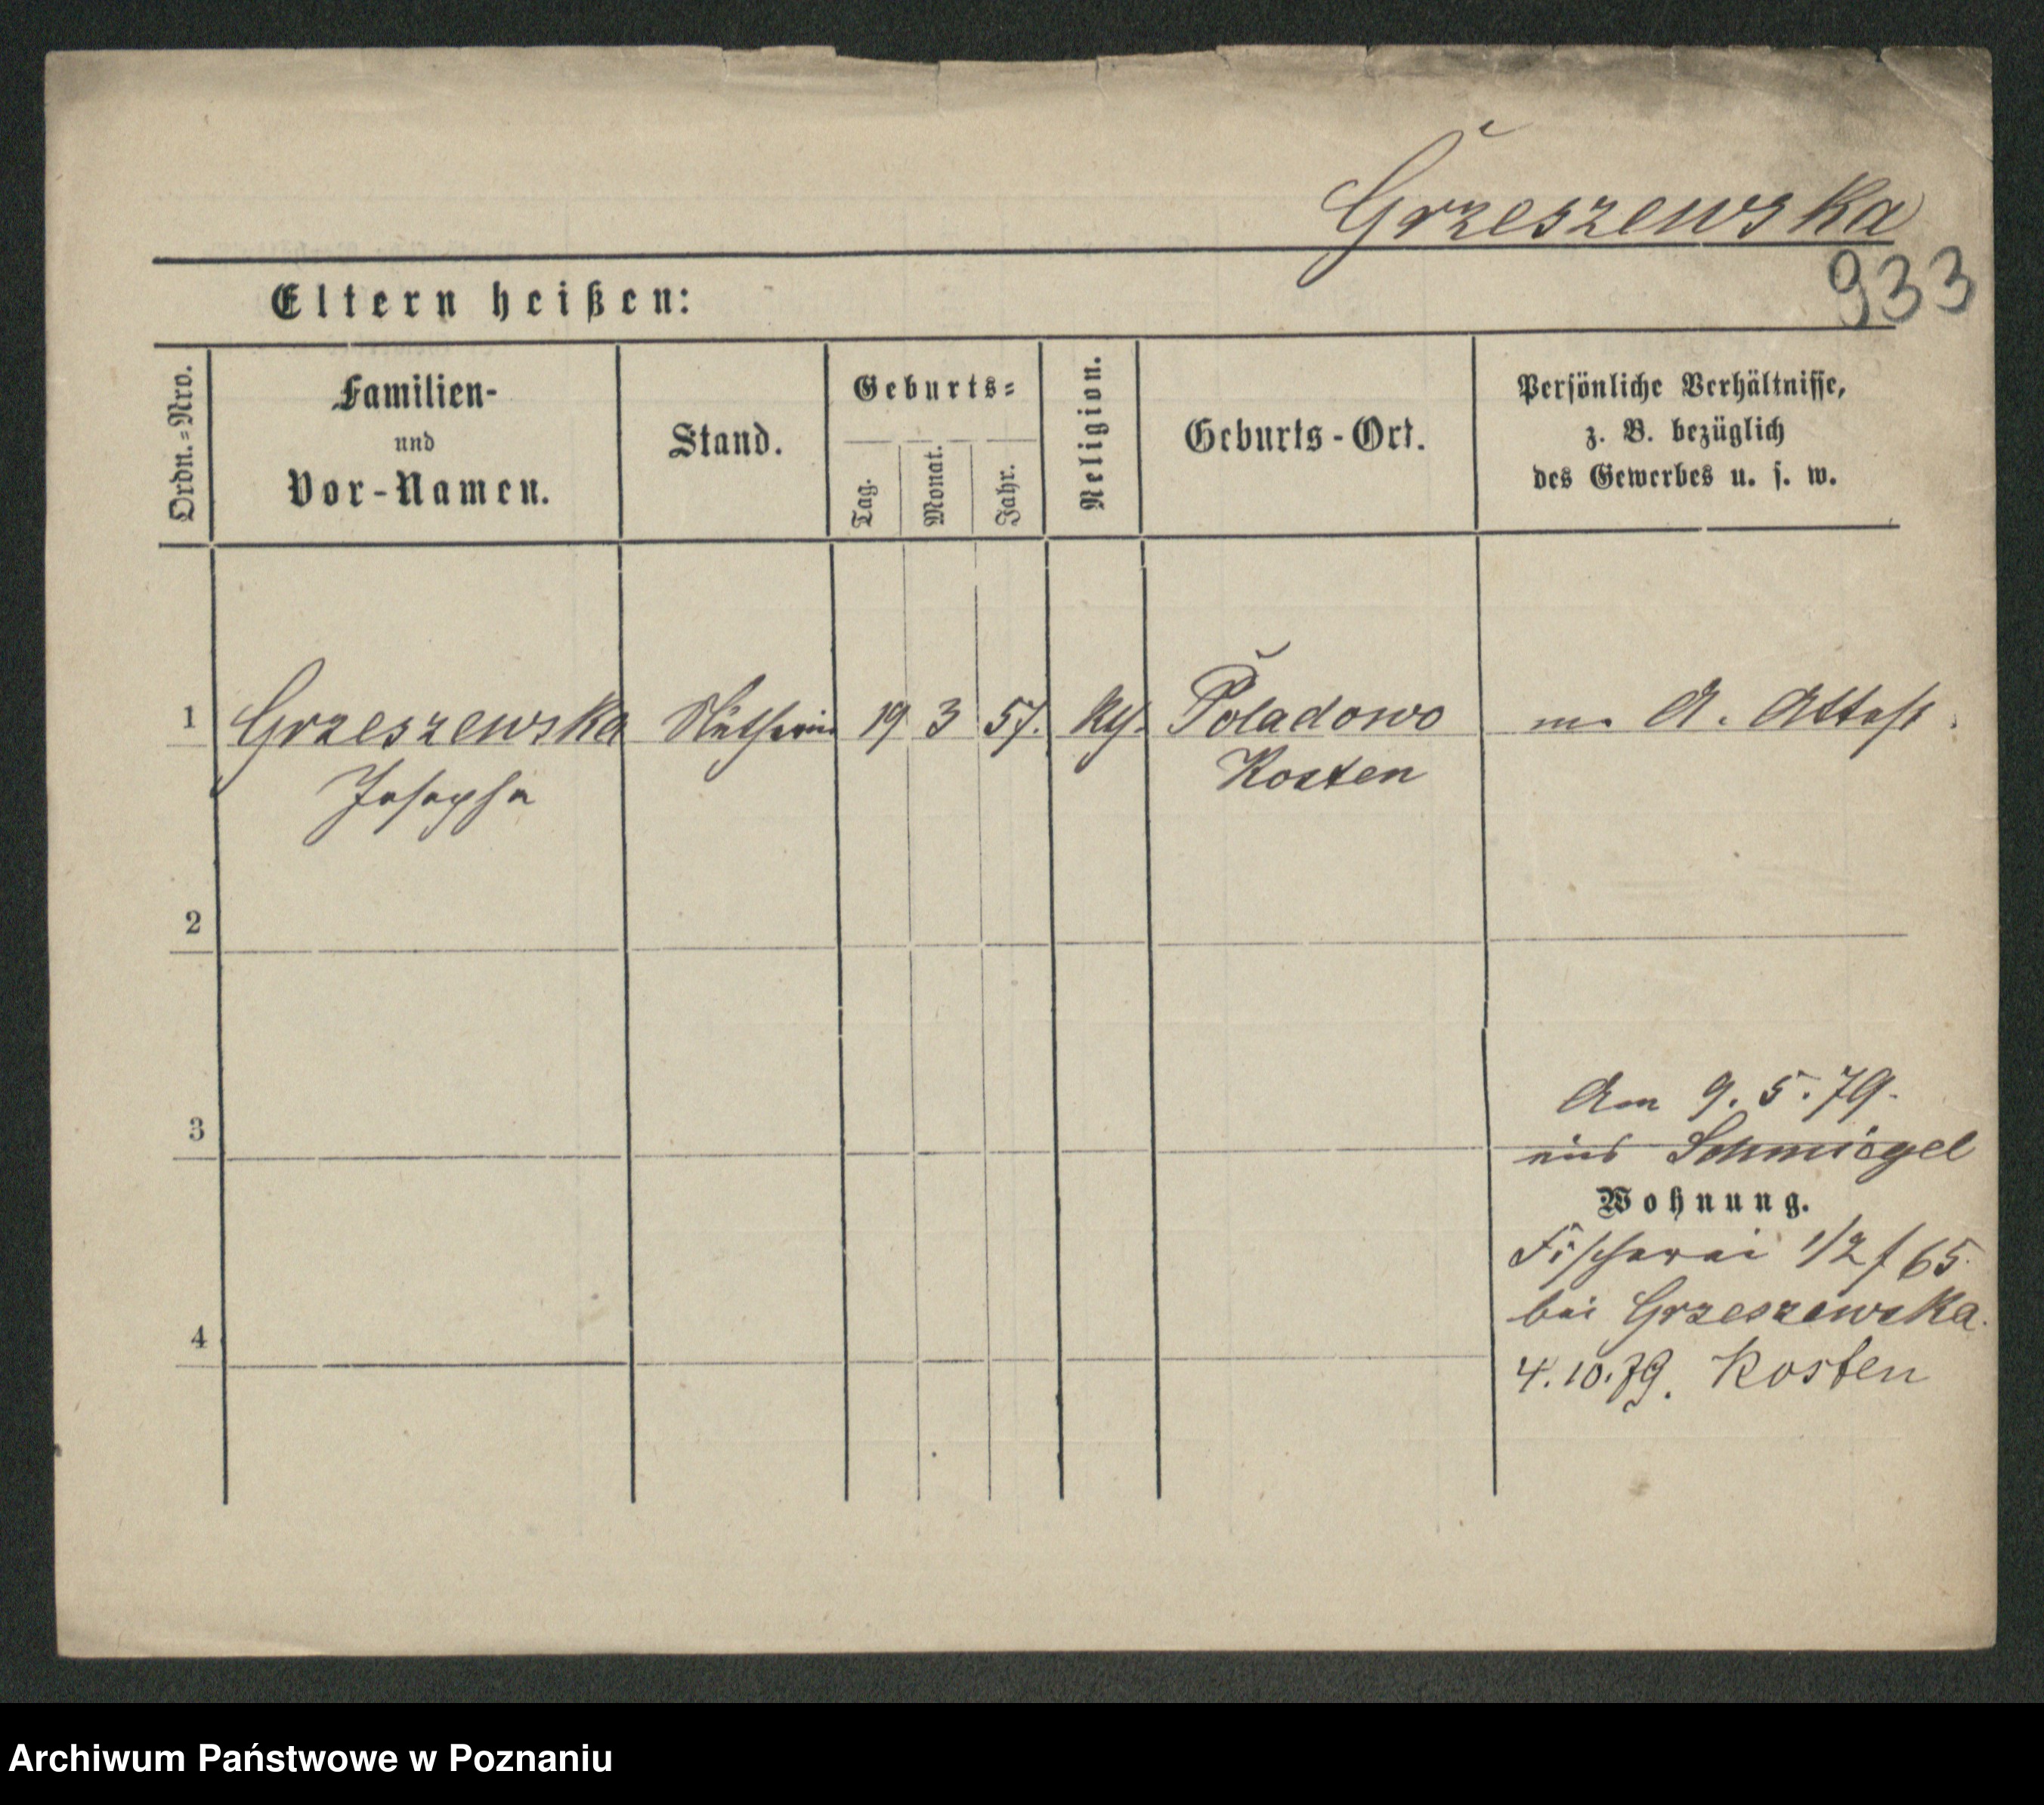 Grzeszewska
933
Eltern heißen:
Ordn.=Nro.
Familien-
und
Vor-Namen.
Stand.
Geburts=
Tag.
Monat.
Jahr.
Religion.
Geburts-Ort.
Persönliche Verhältnisse,
z. B. bezüglich
des Gewerbes u. s. w.
1 Grzeszewska Näthrin 19 3 57. kth. Poladowo m. A. Attest.
Josepha Kosten
2
3
Am 9.5.79.
aus Schmiegel
Wohnung.
Fischerei 1/2 f 65.
bei Grzeszewska.
4
4.10.79. Kosten
Archiwum Państwowe w Poznaniu